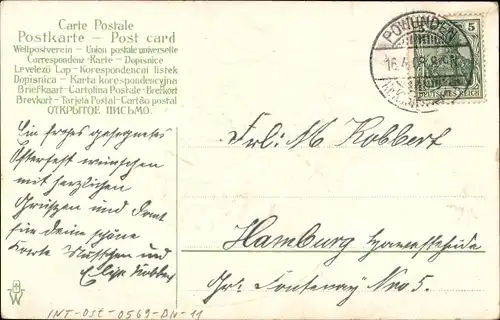 Carte Postale
Postkarte - Post card
Weltpostverein - Union postale universelle
Correspondenz-Karte - Dopisnice
Levelező Lap - Korespondencni listek
Dopisnica - Karta korespondencyjna
Briefkaart - Cartolina Postale - Brefkort
Brevkort - Tarjeta Postal - Cartão postal
ОТКРЫТОЕ ПИСЬМО.
POWUNDEN
16.4.08.8-9V.
5
DEUTSCHES REICH
Ein frohes gesegnetes
Osterfest wünschen
mit herzlichen
Grüszen und Dank
für deine schöne
Karte und
Frl: M. Kobbert
Hamburg
Gr. Fontenay No 5.
W
INT-OSE-0569-BN-11